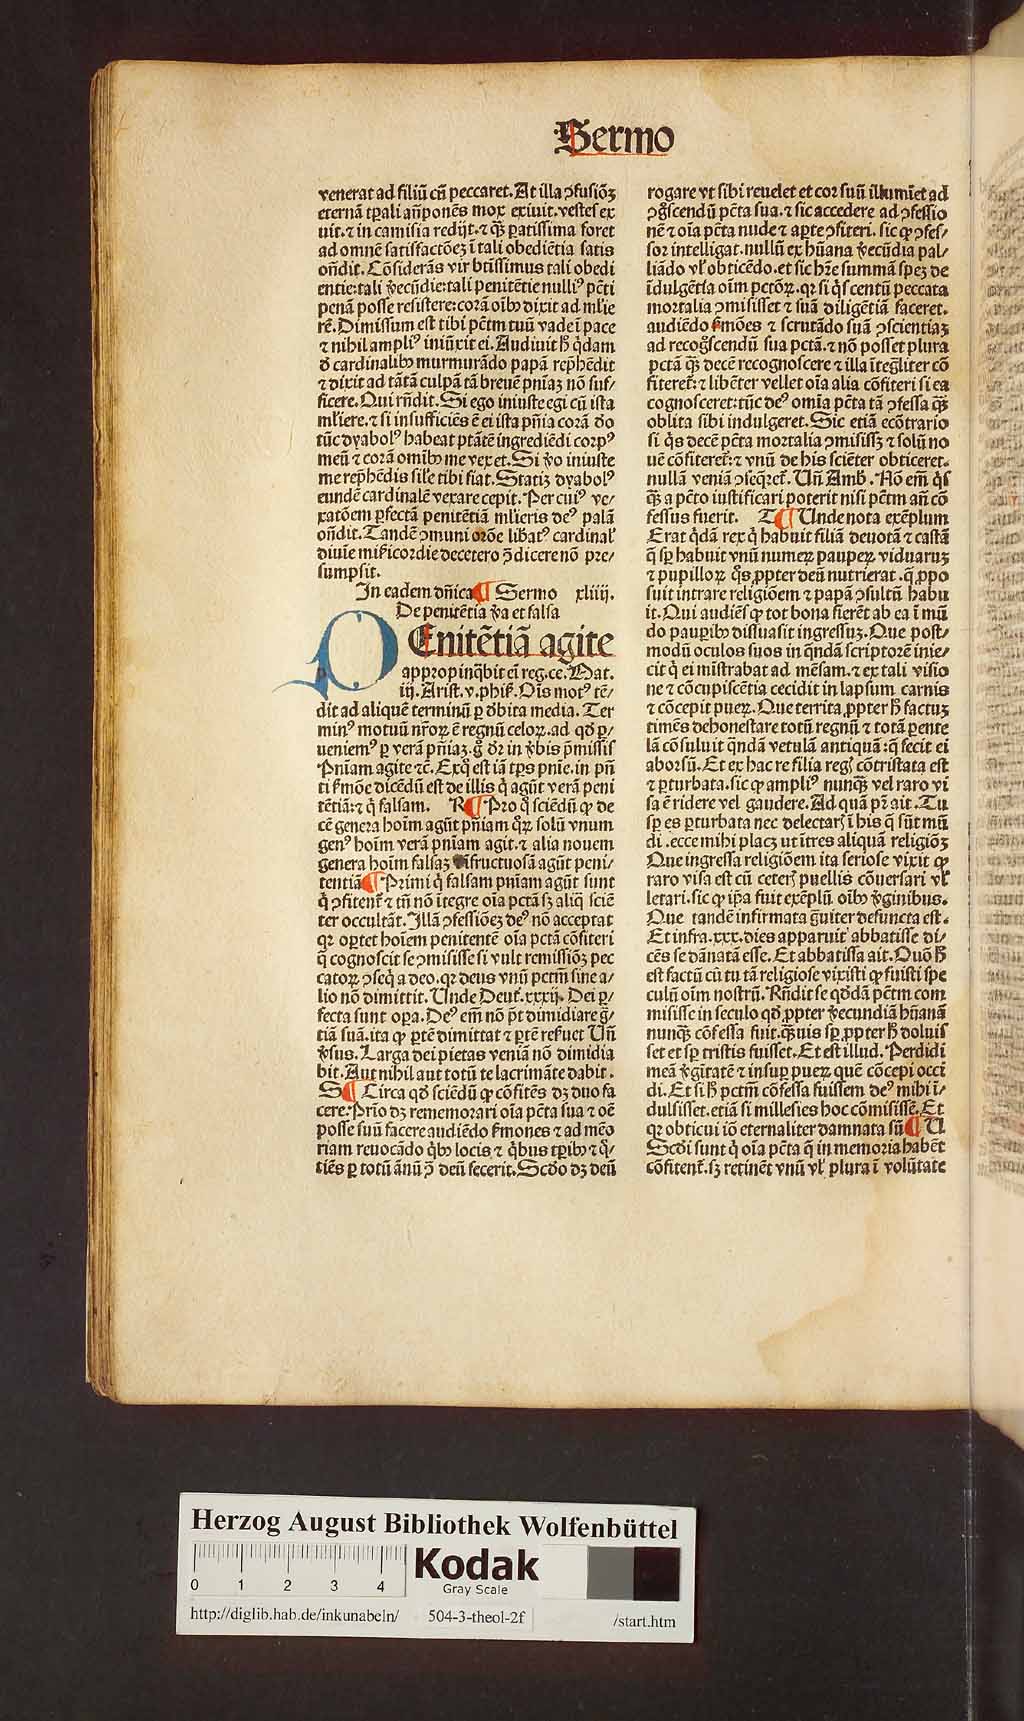 Sermo
venerat ad filiū cū peccaret. At illa ↄfusiōꝫ
eternā tꝑali an̄ponēs mox exiuit. vestes ex
uit. ⁊ in camisia redijt. ⁊ qꝫ paratissima foret
ad omnē satisfactōeꝫ ī tali obediētia satis
on̄dit. Cōsiderās vir btīssimus tali obedi
entie: tali v̓ecūdie: tali penitētie nulliꝰ pcti
penā posse resistere: corā oībꝰ dixit ad mlie
rē. Dimissum est tibi pctm tuū vade ī pace
⁊ nihil ampliꝰ iniūxit ei. Audiuit h̓ q̇dam
d̓ cardinalibꝰ murmurādo papā rep̄hēdit
⁊ dixit ad tātā culpā tā breuē pn̄iaꝫ nō suf⸗
ficere. Qui rn̄dit. Si ego iniuste egi cū ista
mliere. ⁊ si insufficiēs ē ei ista pn̄ia corā do
tūc dyabolꝰ habeat ptātē ingrediēdi corpꝰ
meū ⁊ corā omībꝰ me vexet. Si v̓o iniuste
me rep̄hēdis sile tibi fiat. Statiꝫ dyabolꝰ
eundē cardinalē vexare cepit. Per cuiꝰ ve⸗
xatōem ꝑfectā penitētiā mlieris deꝰ palā
on̄dit. Tandē ↄmuni orōe libatꝰ cardinal̓
diuīe mīcordie decetero ↄ̄dicere nō pre⸗
sumpsit.
In eadem dn̄ica ¶ Sermo xliiij.
De penitētia v̓a et falsa
Enitētiā agite
appropinq̇bit em̄ reg. ce. Mat.
iij. Arist. v. phiẜ. Oīs motꝰ tē⸗
dit ad aliquē terminū ꝑ d̓bita media. Ter
minꝰ motuū nr̄oꝝ ē regnū celoꝝ. ad qd̓ ꝑ⸗
ueniemꝰ ꝑ verā pn̄iaꝫ. gͦ dr in v̓bis p̄missis
Pn̄iam agite ⁊cͣ. Ex q̊ est iā tp̄s pnie. in pn̄
ti ẜmōe dicēdū est de illis q̇ agūt verā peni
tētiā: ⁊ q̇ falsam. R ¶ Pro qͦ sciēdū ꝙ de
cē genera hoīm agūt pn̄iam q̊ꝝ solū vnum
genꝰ hoīm verā pn̄iam agit. ⁊ alia nouem
genera hoīm falsaꝫ īfructuosā agūt peni⸗
tentiā ¶ Primi q̇ falsam pn̄iam agūt sunt
q̇ ↄfitent̄ ⁊ tn̄ nō ītegre oīa pctā sꝫ aliq̇ sciē
ter occultāt. Illā ↄfessiōeꝫ deꝰ nō acceptat
qꝛ oꝑtet hoīem penitentē oīa pctā cōfiteri
q̄ cognoscit se ↄmisisse si vult remissiōꝫ pec
catoꝝ ↄseq̇ a deo. qꝛ deus vnū pctm̄ sine a⸗
lio nō dimittit. Unde Deut̄. xxxij. Dei ꝑ⸗
fecta sunt oꝑa. Deꝰ em̄ nō pt̄ dimidiare gr̄⸗
tiā suā. ita ꝙ ꝑtē dimittat ⁊ ꝑtē reẜuet Un̄
v̓sus. Larga dei pietas veniā nō dimidia
bit. Aut nihil aut totū te lacrimāte dabit.
S ¶ Circa qd̓ sciēdū ꝙ cōfitēs dꝫ duo fa
cere. Prīo dꝫ rememorari oīa pctā sua ⁊ oē
posse suū facere audiēdo ẜmones ⁊ ad meō
riam reuocādo q̇bꝰ locis ⁊ q̇bus tꝑibꝰ ⁊ q̊⸗
tiēs ꝑ totū ānū ↄ̄ deū fecerit. Scd̓o dꝫ deū
rogare vt sibi reuelet et cor suū illumīet ad
ↄgͦscendū pctā sua. ⁊ sic accedere ad ↄfessio
nē ⁊ oīa pctā nude ⁊ aꝑte ↄfiteri. sic ꝙ ↄfes⸗
sor intelligat. nullū ex hūana v̓ecūdia pal⸗
liādo vl̓ obticēdo. et sic hr̄e summā speꝫ de
īdulgētīa oīm pctōꝝ. qꝛ si q̇s centū peccata
mortalia ↄmisisset ⁊ suā diligētiā faceret.
audiēdo ẜmōes ⁊ scrutādo suā ↄscientiaꝫ
ad recogͦscendū sua pctā. ⁊ nō posset plura
pctā qꝫ decē recognoscere ⁊ illa īteg̓liter cō
fiteret̄: ⁊ libēter vellet oīa alia cōfiteri si ea
cognosceret: tūc deꝰ omīa pctā tā ↄfessa qꝫ
oblita sibi indulgeret. Sic etiā ecōtrario
si q̇s decē pctā mortalia ↄmisissꝫ ⁊ solū no
uē cōfiteret̄: ⁊ vnū de his sciēter obticeret.
nullā veniā ↄseqret̄. Un̄ Amb̄. Nō em̄ q̇s
qꝫ a pctō iustificari poterit nisi pctm̄ an̄ cō
fessus fuerit. T ¶ Unde nota exēplum
Erat q̇dā rex q̇ habuit filiā deuotā ⁊ castā
q̄ sp̄ habuit vnū numeꝝ pauꝑeꝝ viduaruꝫ
⁊ pupilloꝝ q̊s ꝓpter deū nutrierat. q̄ ꝓpo
suit intrare religiōem ⁊ papā ↄsultū habu
it. Qui audiēs ꝙ tot bona fierēt ab ea ī mū
do pauꝑibꝰ dissuasit ingressuꝫ. Que post⸗
modū oculos suos in q̄ndā scriptorē inie⸗
cit q̇ ei mīstrabat ad mēsam. ⁊ ex tali visio
ne ⁊ cōcupiscētia cecidit in lapsum carnis
⁊ cōcepit pueꝝ. Que territa ꝓpter h̓ factuꝫ
timēs dehonestare totū regnū ⁊ totā parente
lā cōsuluit q̄ndā vetulā antiquā: q̄ fecit ei
aborsū. Et ex hac re filia regꝭ cōtristata est
⁊ ꝑturbata. sic ꝙ ampliꝰ nunqꝫ vel raro vi
sa ē ridere vel gaudere. Ad quā pr̄ ait. Tu
sp̄ es ꝑturbata nec delectarꝭ ī his q̄ sūt mū
di. ecce mihi placꝫ ut ītres aliquā religiōꝫ
Que ingressa religiōem ita seriose vixit ꝙ
raro visa est cū ceterꝭ puellis cōuersari vl̓
letari. sic ꝙ ip̄a fuit exēplū oībꝰ v̓ginibus.
Que tandē infirmata g̓uiter defuncta est.
Et infra. xxx. dies apparuit abbatisse di⸗
cēs se dānatā esse. Et abbatissa ait. Quō h̓
est factū cū tu tā religiose vixisti ꝙ fuisti spe
culū oīm nostrū. Rn̄dit se qd̓dā pctm̄ com
misisse in seculo qd̓ ꝓpter v̓ecundiā hūanā
nunqꝫ cōfessa fuit. qꝫuis sp̄ ꝓpter h̓ doluis
set et sp̄ tristis fuisset. Et est illud. Perdidi
meā v̓gītatē ⁊ insuꝑ pueꝝ quē cōcepi occi
di. Et si h̓ pctm̄ cōfessa fuissem deꝰ mihi ī⸗
dulsisset. etiā si millesies hoc cōmisissē. Et
qꝛ obticui iō eternaliter damnata sū ¶ U
Scd̓i sunt q̇ oīa pctā q̄ in memoria habēt
cōfitent̄. sꝫ retinēt vnū vl̓ plura ī volūtate
Herzog August Bibliothek Wolfenbüttel
0 1 2 3 4
Kodak
Gray Scale
http://diglib.hab.de/inkunabeln/ 504-3-theol-2f /start.htm